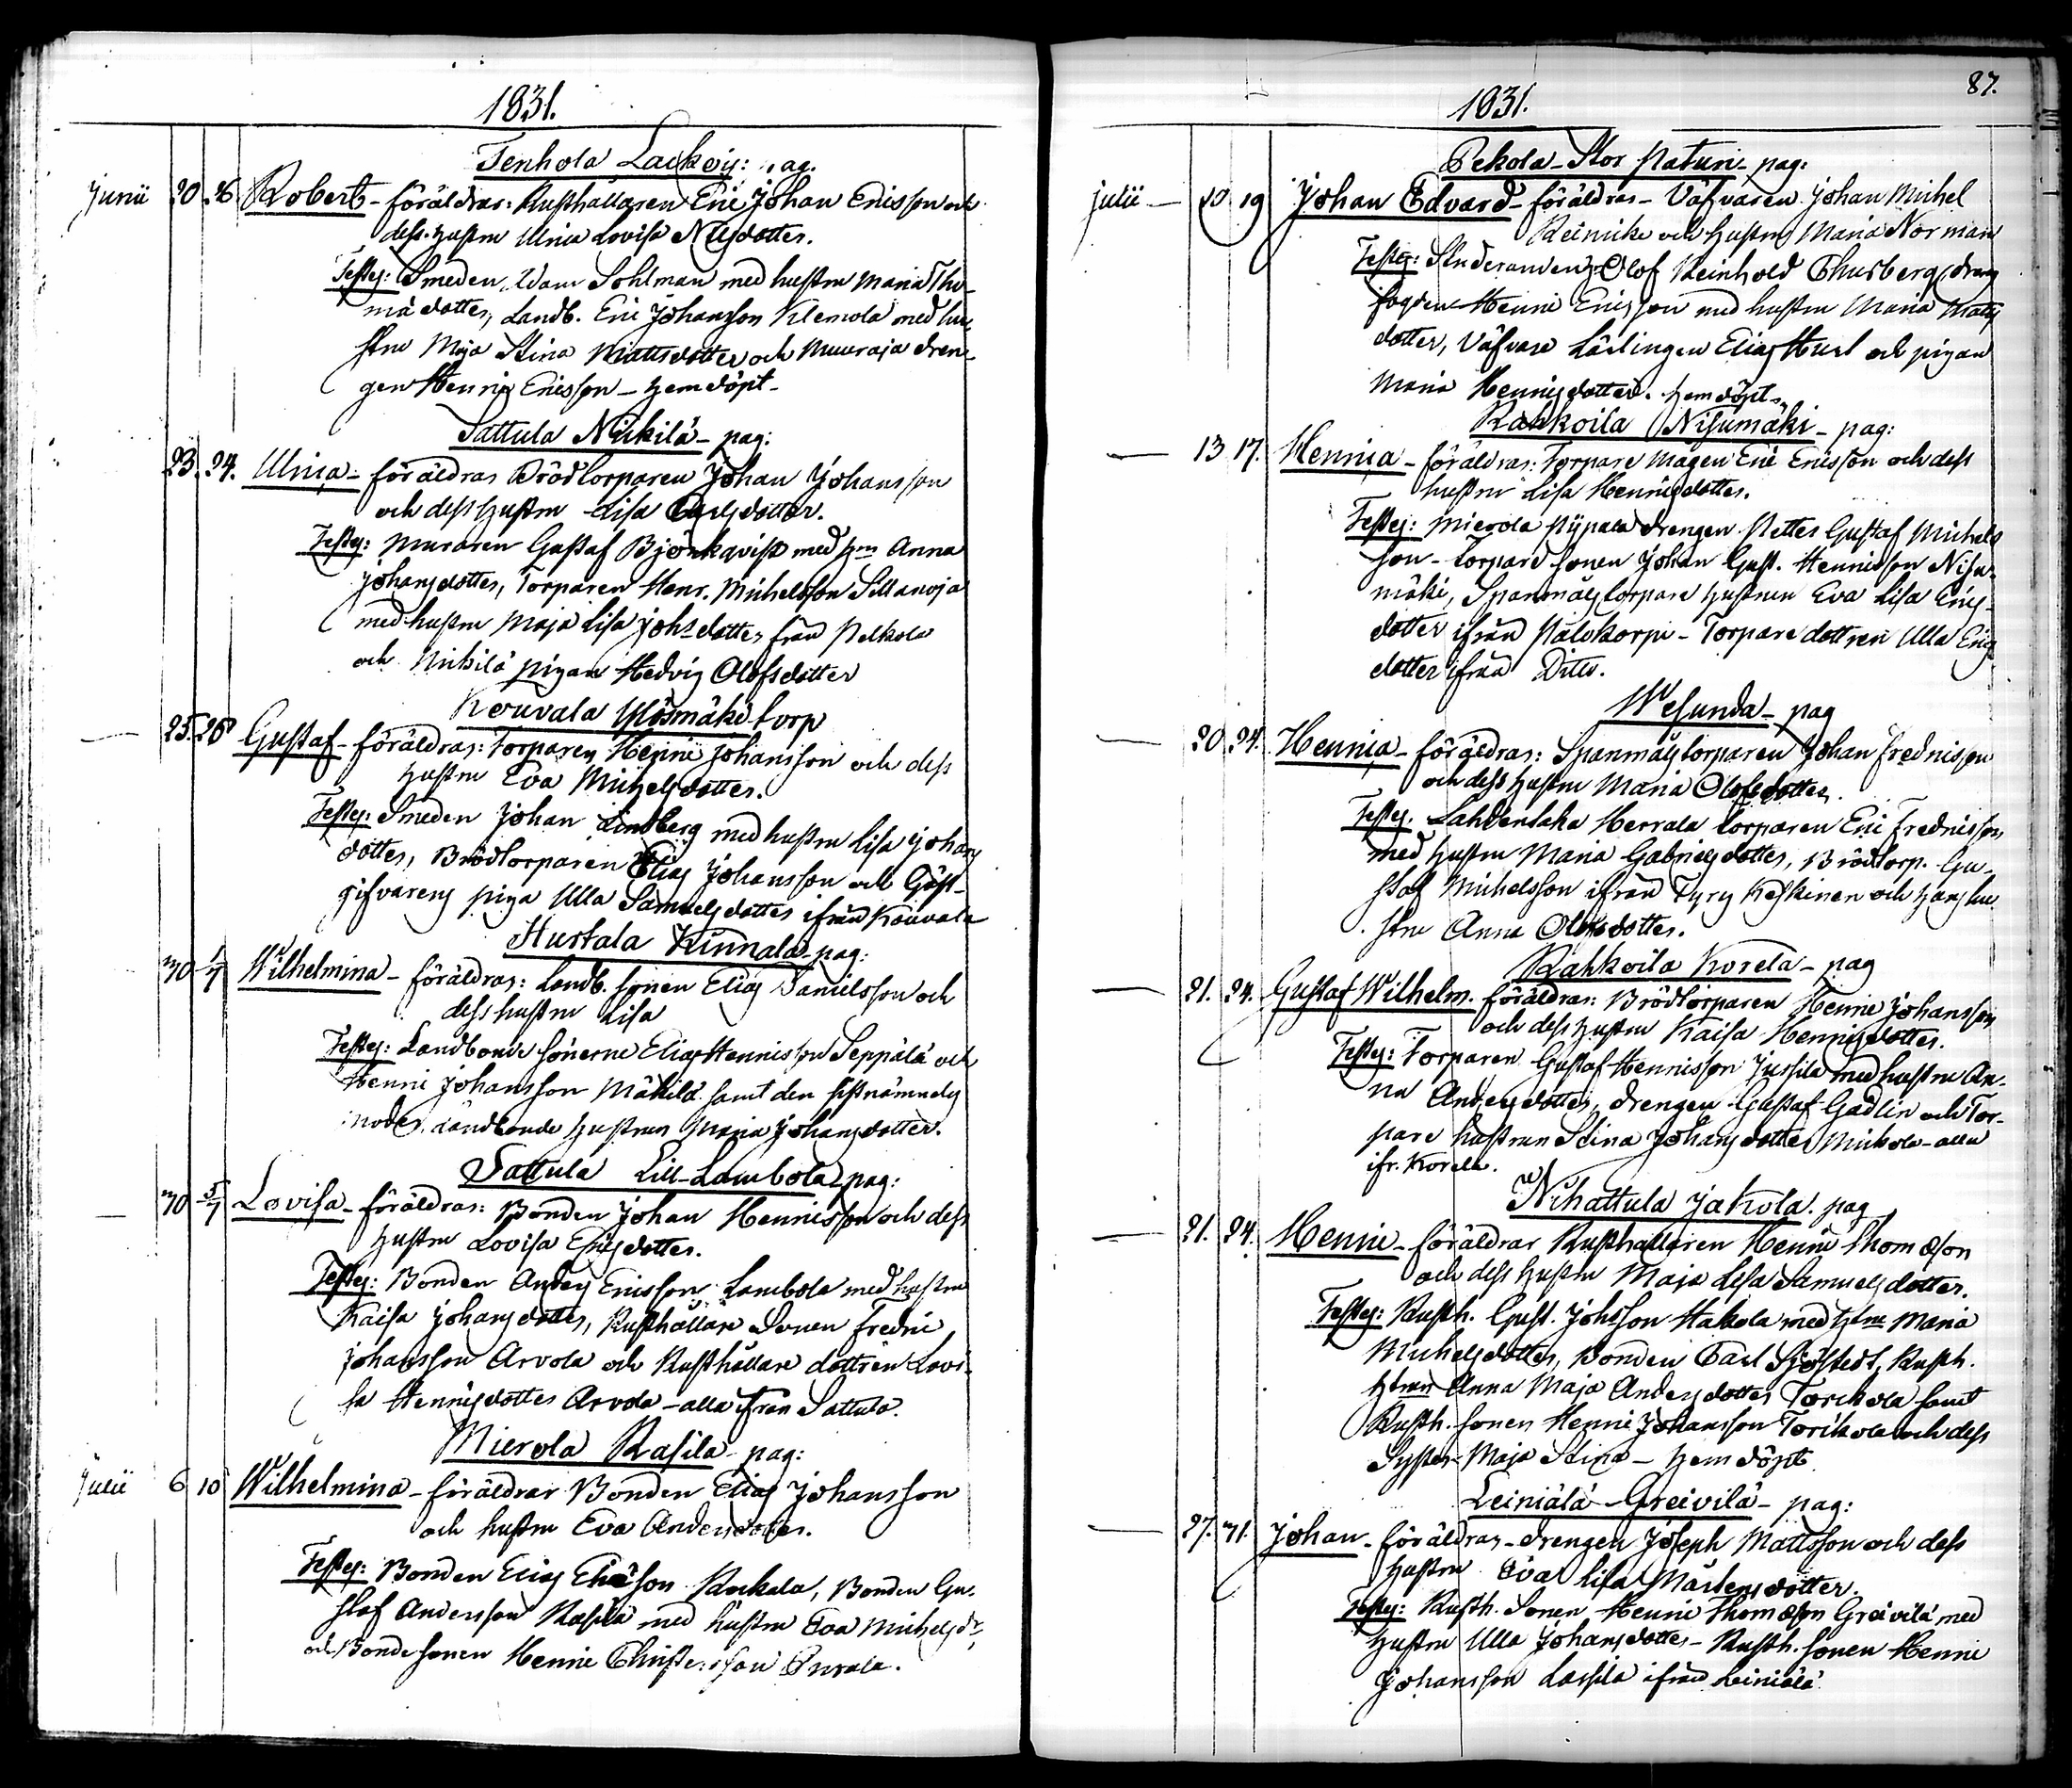 1831.
Tenhola Lackoij: pag.
Junii 20. 26. Robert - föräldrar: Rusthållaren Eric Johan Ericsson och
dess hustru Ulrica Lovisa Nilsdotter.
Testes: Smeden Adam Sohlman med hustru Maria Tho-
mædotter, Landb. Eric Johansson Klemola med hu-
stru Maja Stina Mattsdotter och Muuraja dren-
gen Henric Ericsson - hemdöpt -
Sattula Nickilä - pag:
23. 24. Ulrica - föräldrar Brödtorparen Johan Johansson
och dess hustru Lisa Carlsdotter.
Testes: Muraren Gustaf Björkqvist med hru Anna
Johansdotter, Torparen Henr. Michelsson Sillanoja
med hustru Maja Lisa Johsdotter från Pelkola
och Nickilä pigan Hedvig Olofsdotter
Kouvala Ylösmäki torp
25. 26 Gustaf - föräldrar: Torparen Henric Johansson och dess
hustru Eva Michelsdotter.
Testes: Smeden Johan Lindberg med hustru Lisa Johans
dotter, Brödtorparen Elias Johansson och Gäst-
gifvarens piga Ulla Samuelsdotter ifrån Kouvala
Hurtala Kinnala - pag:
30 1/7 Wilhelmina - föräldrar: Landb. sonen Elias Danielsson och
dess hustru Lisa
Testes: Landbonde sönerne Elias Henricsson Seppälä och
Henric Johansson Mäkilä samt den sistnämndes
moder, Landbonde hustrun Maria Johansdotter.
Sattula Lill-Lambola pag:
30 5/7 Lovisa - föräldrar: Bonden Johan Henricsson och dess
hustru Lovisa Ericsdotter.
Testes: Bonden Anders Ericsson Lambola med hustru
Kaisa Johansdotter, Rusthållare Sonen Fredric
Johansson Arvola och Rusthållare dottren Lovi-
sa Henricsdotter Arvola - alla ifrån Sattula.
Mierola Rasila pag:
Julii 6 10 Wilhelmina - föräldrar Bonden Elias Johansson
och hustru Eva Andersdotter.
Testes: Bonden Elias Eliæson Kackala, Bonden Gu-
staf Andersson Rasila med hustru Eva Michelsdr,
och Bondesonen Henric Christersson
87.
1831.
Pekola - Stor Paturi pag:
Julii 19 Johan Edvard - föräldrar - Väfvaren Johan Michel
Reinicke och hustru Maria Norman
Testes: Studeranden Olof Reinhold Thusberg, dreng
fogden Henric Ericsson med hustru Maria Matts
dotter, Väfvare Lärlingen Elias Hurl och pigan
Maria Henricsdotter. hemdöpt.
Rahkoila Nisumäki - pag:
13 17. Henrica - föräldrar: Torpare Mågen Eric Ericsson och dess
hustru Lisa Henricsdotter.
Testes: Mierola Pijpala drengen Petter Gustaf Michels
son - torpare sonen Johan Gust. Henricsson Nisu-
mäki, Spanmåls torpare hustrun Eva Lisa Erics-
dotter ifrån Pälvkorpi - Torpare dottren Ulla Erics
dotter ifrån Ditto.
Wesunda - pag
20. 24. Henrica - föräldrar: Spanmåls torparen Johan Fredricsson
och dess hustru Maria Olofsdotter.
Testes. Lahdentaka Herrala torparen Eric Fredricsson
med hustru Maria Gabrielsdotter, Brödtorp. Gu-
staf Michelsson ifrån Tyry Keskinen och hans hu
stru Anna Olofsdotter.
Rahkoila Korela - pag
21. 24. Gustaf Wilhelm. föräldrar: Brödtorparen Henric Johansson
och dess hustru Kaisa Henricsdotter.
Testes: Torparen Gustaf Henricsson Jussila med hustru An-
na Andersdotter, drengen Gustaf Gadlin och Tor-
pare hustrun Stina Johansdotter Mickola - alla
ifr. Korela.
Nihattula Jakola. pag
21. 24. Henric - föräldrar Rusthållaren Henric Thomæson
och dess hustru Maja Lisa Samuelsdotter.
Testes: Rusth. Gust. Johsson Hakola med hru Maria
Michelsdotter, Bonden Carl Sjöstedt, Rusth.
hrun Anna Maja Andersdotter Torikola samt
Rusth. sonen Henric Johansson Torikola och dess
Syster Maja Stina - hemdöpt
Leiniälä Greivilä - pag:
27. 31. Johan - föräldrar - drengen Joseph Mattsson och dess
hustru Eva Lisa Mårtensdotter.
Testes: Rusth. Sonen Henric Thomæson Greivilä med
hustru Ulla Johansdotter - Rusth. sonen Henric
Johansson Lassila ifrån Leiniälä